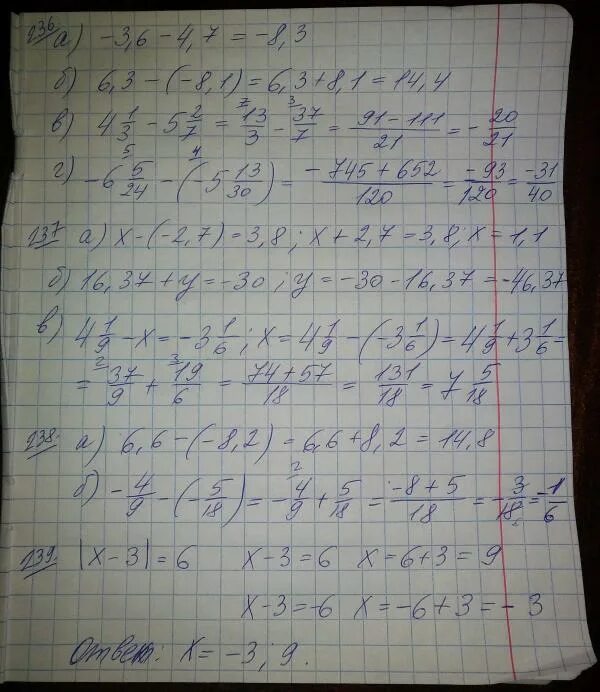 236 а) -3,6 - 4,7 = -8,3
б) 6,3 - (-8,1) = 6,3 + 8,1 = 14,4
в) 4 1/3 - 5 2/7 = 7 13/3 - 3 37/7 = 91 - 111/21 = - 20/21
г) -6 5 5/24 - (-5 4 13/30) = -745 + 652/120 = -93/120 = -31/40
237 а) x - (-2,7) = 3,8; x + 2,7 = 3,8; x = 1,1
б) 16,37 + y = -30; y = -30 - 16,37 = -46,37
в) 4 1/9 - x = -3 1/6; x = 4 1/9 - (-3 1/6) = 4 1/9 + 3 1/6 =
= 2 37/9 + 3 19/6 = 74 + 57/18 = 131/18 = 7 5/18
238. а) 6,6 - (-8,2) = 6,6 + 8,2 = 14,8
б) - 4/9 - (- 5/18) = - 2 4/9 + 5/18 = -8 + 5/18 = - 3/18 = -1/6
239. |x - 3| = 6 x - 3 = 6 x = 6 + 3 = 9
x - 3 = -6 x = -6 + 3 = -3
Ответ: x = -3; 9.